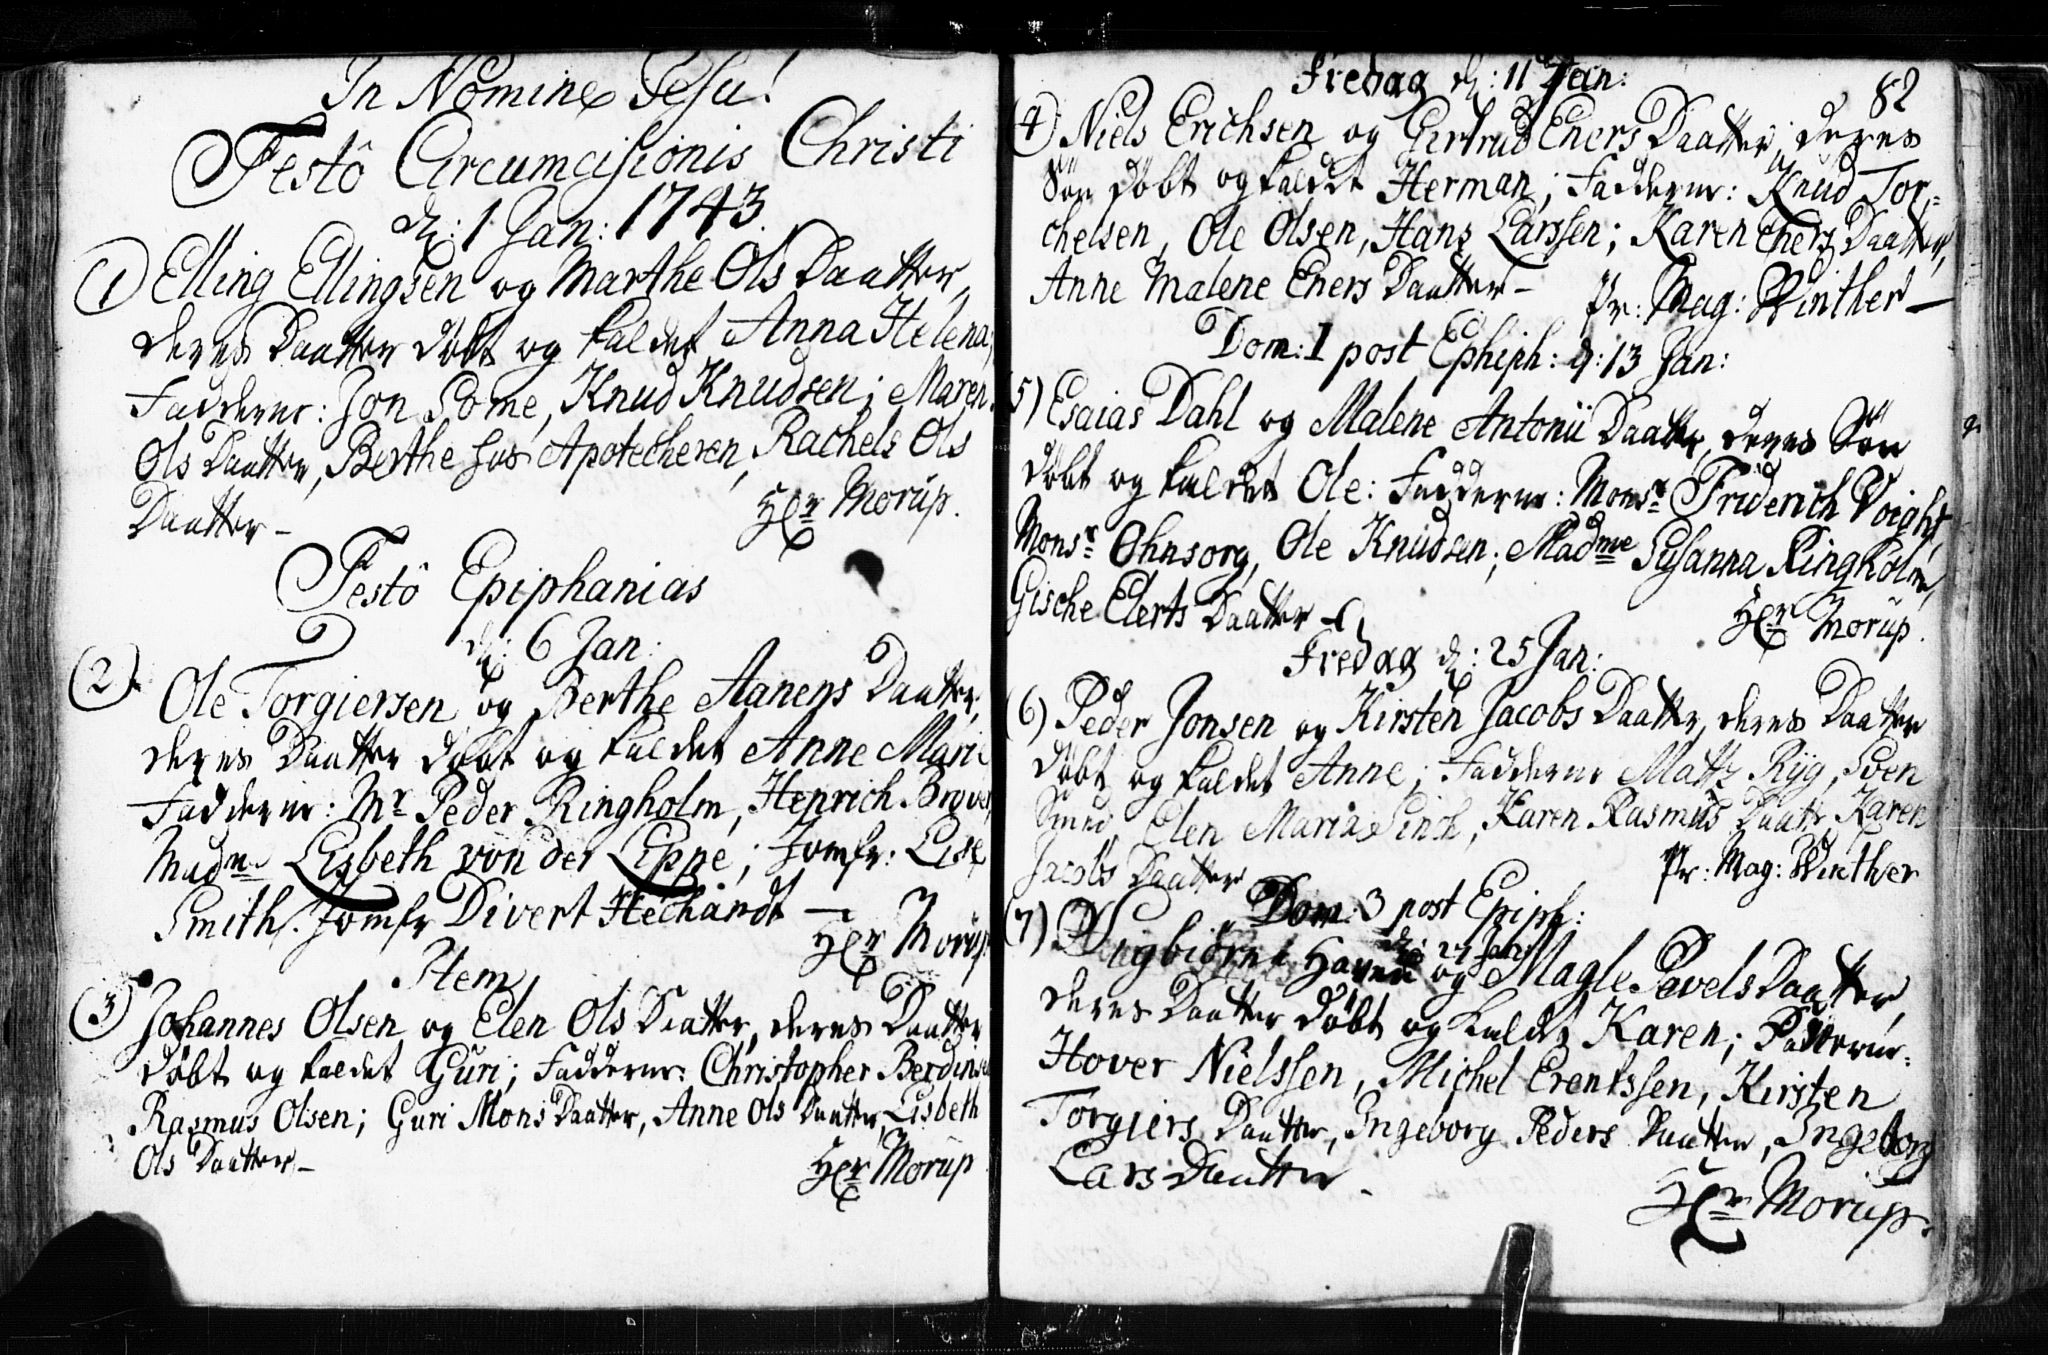 In Nomine Jesu!
Festô Circumcisionis Christi
d: 1 Jan: 1743.
1) Elling Ellingsen og Marthe Ols Daatter,
deres Daatter döbt og kaldet Anna Helena;
Fadderne: Jon Some, Knud Knudsen; Maren
Ols Daatter, Berthe hos Apotecheren, Rachels Ols
Daatter –
Hr Morup.
Festô Epiphanias
d: 6 Jan:
2) Ole Torgiersen og Berthe Aanens Daatter,
deres Daatter döbt og kaldet Anne Marie
Fadderne: Mr Peder Ringholm, Henrich
Madme Lisbeth von der Lippe; Jomfr: Lise
Smith. Jomfr Divert Hechandt –
Hr Morup
Item
3) Johannes Olsen og Elen Ols Daatter, deres Daatter
döbt og kaldet Guri; Fadderne: Christopher
Rasmus Olsen; Guri Mons Daatter, Anne Ols Daatter, Lisbeth
Ols Daatter –
Hr Morup
82
Fredag d: 11 Jan:
4) Niels Erichsen og Girtrud Eners Daatter, deres
Sön döbt og kaldet Herman; Fadderne: Knud Tor-
chelsen, Ole Olsen, Hans Larssen; Karen Eners Daatter,
Anne Malene Eners Daatter –
Pr: Mag: Winther –
Dom: 1 post Ephiph: d: 13 Jan:
5) Esaias Dahl og Malene Antonii Daatter, deres Sön
döbt og kaldet Ole: Fadderne: Monsr Friderich Voight,
Monsr Ohnsorg, Ole Knudsen; Madme Susanna Ringholm,
Gische Elerts Daatter –
Hr Morup.
Fredag d: 25 Jan:
6) Peder Jonsen og Kirsten Jacobs Daatter, deres Daatter
döbt og kaldet Anne; Fadderne Matts Ryg, Sven
Smed, Elen Maria Finch, Karen Rasmus Daatr Karen
Jacobs Daatter
Pr: Mag: Winther
Dom: 3 post Epiph:
d: 27 Jan:
7) Haven og Magle Pavels Daatter,
deres Daatter döbt og kaldet Karen; Fadderne:
Hover Nielssen, Michel Erentssen, Kirsten
Torgiers Daatter, Ingeborg Peders Daatter, Ingeborg
Lars Daatter.
Hr Morup.